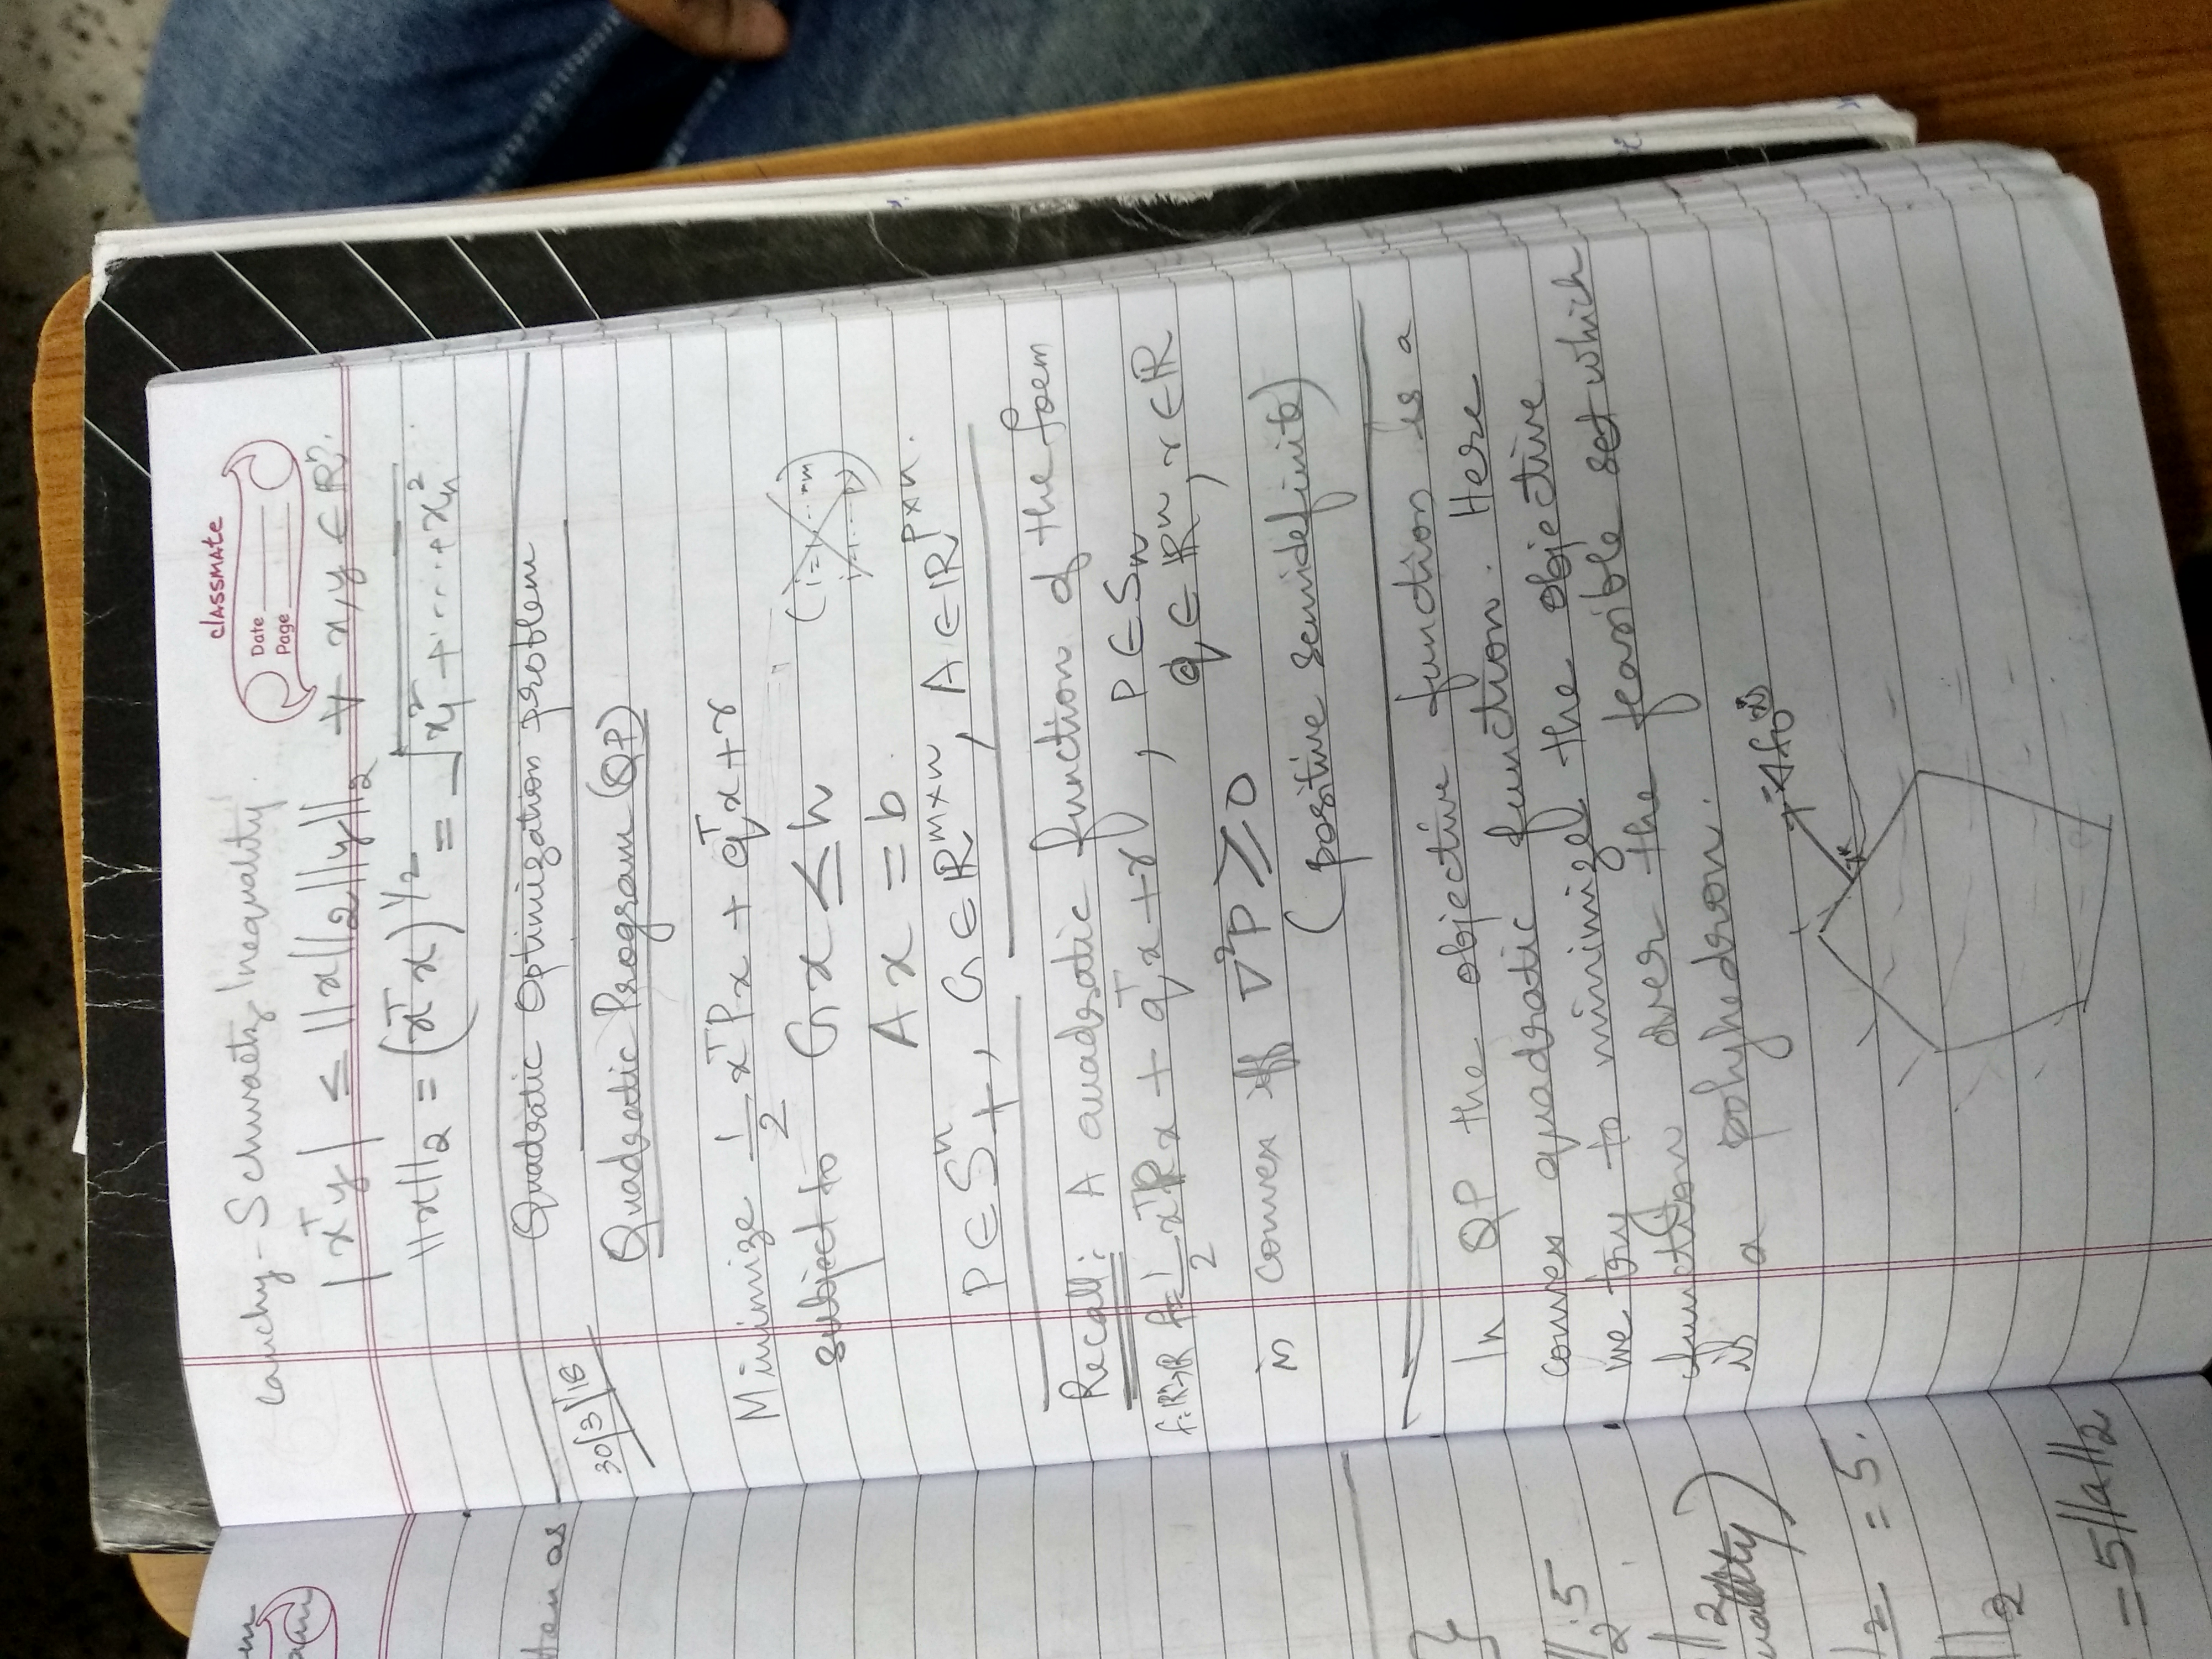 classmate
Date
Page
Cauchy-Schwartz Inequality.
|xᵀy| ≤ ||x||₂||y||₂ ∀ x,y ∈ ℝⁿ.
||x||₂ = (xᵀx)^1/2 = √x₁² + ---- + xₙ²
Quadratic Optimization problem
30/3/18
Quadratic Program (QP)
Minimize 1/2 xᵀPx + qᵀx + r
subject to Gx ≤ h
Ax = b.
P ∈ Sⁿ₊, G ∈ ℝ^m×n, A ∈ ℝ^p×n.
Recall: A quadratic function of the form
f:ℝⁿ→ℝ f = 1/2 xᵀPx + qᵀx + r, P ∈ Sₙ
q ∈ ℝⁿ, r ∈ ℝ
is convex iff ∇²P ≥ 0
(positive semidefinite)
In QP the objective function is a
convex quadratic function. Here
we try to minimize the objective
function over the feasible set which
is a polyhedron.
-∇f₀(x*)
x*
ten as
}
||₂.5
||₂
uality)
||₂ = 5.
||₂
= 5||a||₂